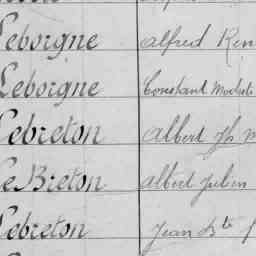 Leborgne Alfred Ren
Leborgne Constant Modeste
Lebreton Albert Jh M
Le Breton Albert Julien
Lebreton Jean Bte